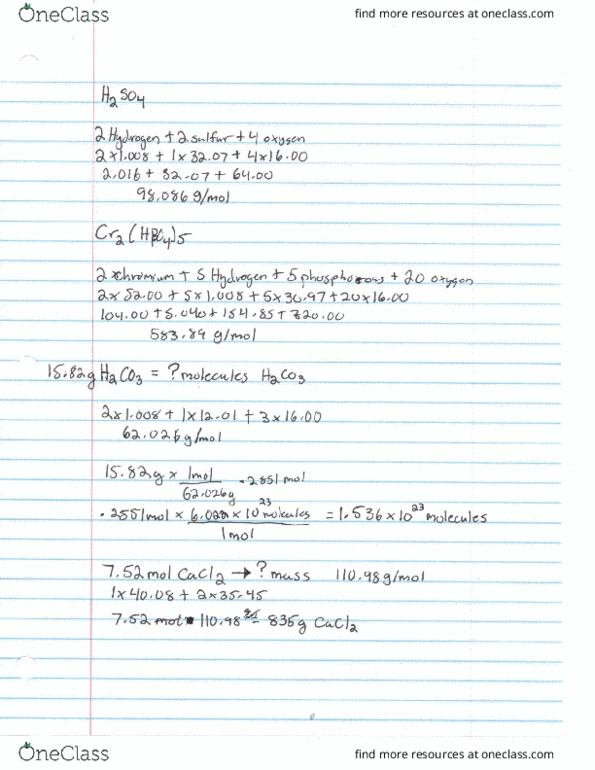 OneClass find more resources at oneclass.com
H2SO4
2 Hydrogen + 2 sulfur + 4 oxygen
2×1.008 + 1×32.07 + 4×16.00
2.016 + 32.07 + 64.00
98.086 g/mol
Cr2(HPO4)5
2 chromium + 5 Hydrogen + 5 phosphorous + 20 oxygen
2×52.00 + 5×1.008 + 5×30.97 + 20×16.00
104.00 + 5.040 + 154.85 + 320.00
583.89 g/mol
15.82g H2CO3 = ? molecules H2CO3
2×1.008 + 1×12.01 + 3×16.00
62.026 g/mol
15.82g × 1mol .2551 mol
62.026g
.2551 mol × 6.022 × 10^23 molecules = 1.536 × 10^23 molecules
1mol
7.52 mol CaCl2 → ? mass 110.98 g/mol
1×40.08 + 2×35.45
7.52 mol • 110.98 = 835g CaCl2
OneClass find more resources at oneclass.com